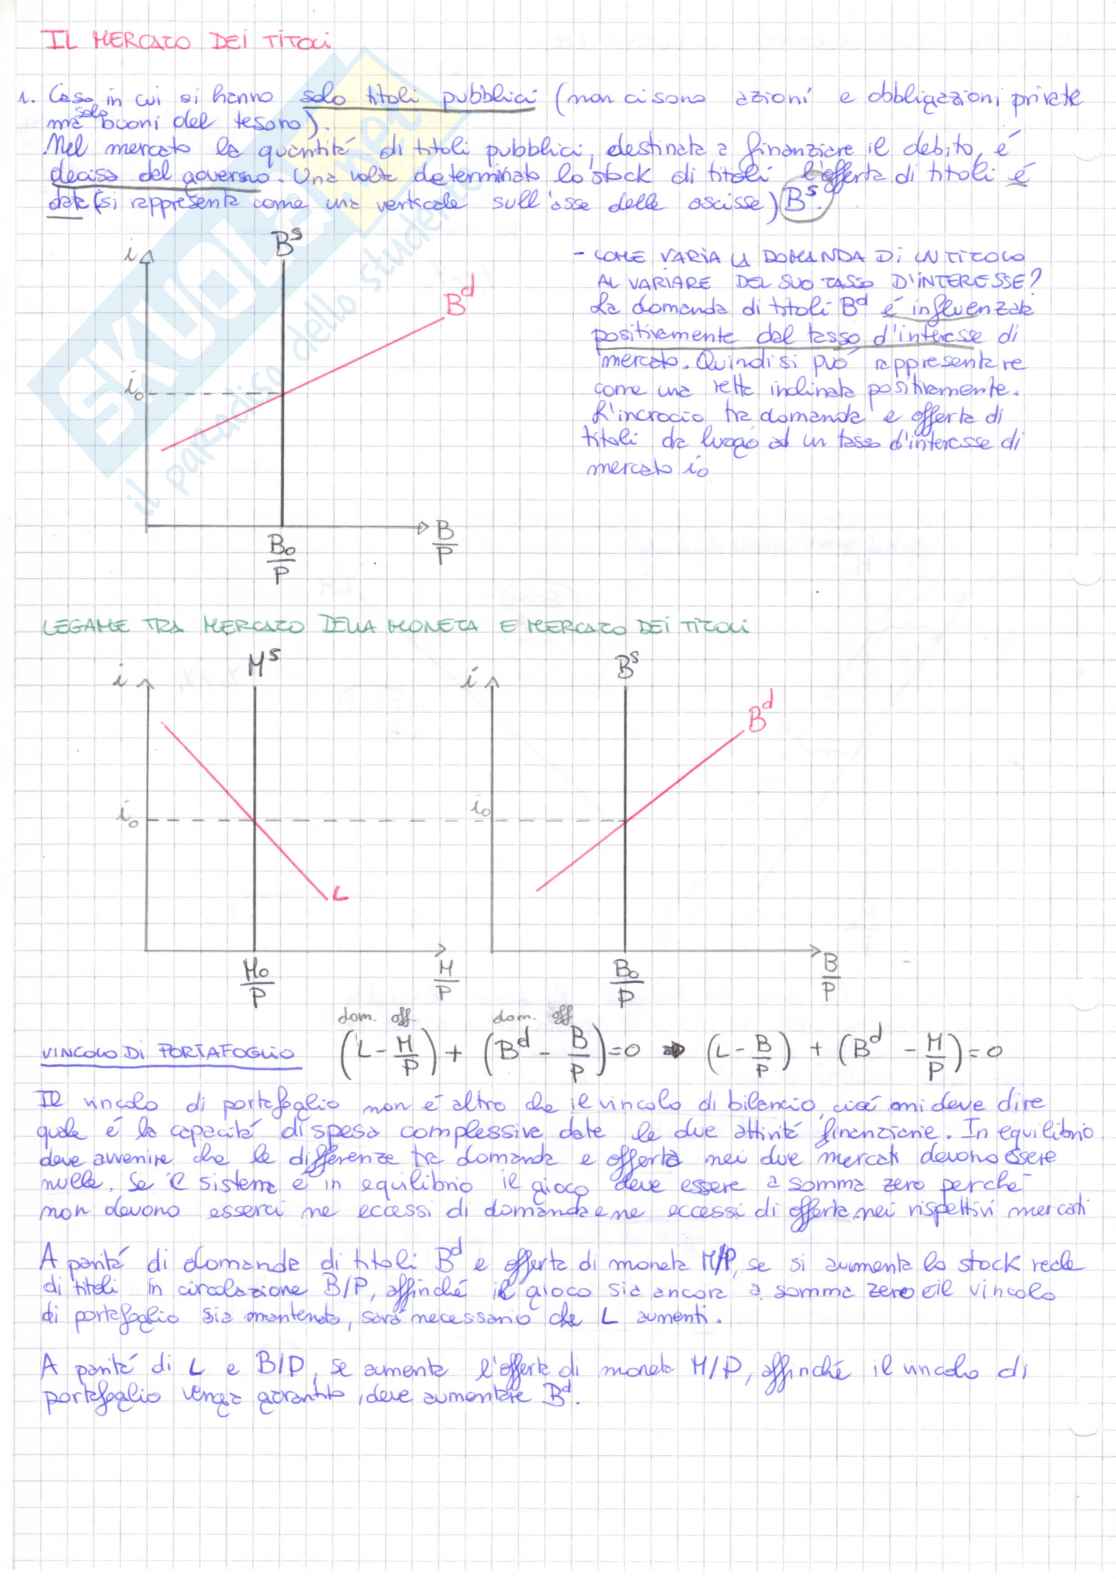 IL MERCATO DEI TITOLI
1. Caso in cui si hanno solo titoli pubblici (non ci sono azioni e obbligazioni private
ma solo buoni del tesoro).
Nel mercato la quantità di titoli pubblici, destinata a finanziare il debito, è
decisa dal governo. Una volta determinato lo stock di titoli l'offerta di titoli è
data (si rappresenta come una verticale sull'asse delle ascisse) Bˢ.
i
Bˢ
Bᵈ
i₀
B₀/P
B/P
- COME VARIA LA DOMANDA DI UN TITOLO
AL VARIARE DEL SUO TASSO D'INTERESSE?
La domanda di titoli Bᵈ è influenzata
positivamente dal tasso d'interesse di
mercato. Quindi si può rappresentare
come una retta inclinata positivamente.
L'incrocio tra domanda e offerta di
titoli da luogo ad un tasso d'interesse di
mercato i₀
LEGAME TRA MERCATO DELLA MONETA E MERCATO DEI TITOLI
i
Mˢ
i₀
L
M₀/P
M/P
i
Bˢ
Bᵈ
i₀
B₀/P
B/P
dom. off. dom. off
VINCOLO DI PORTAFOGLIO (L - M/P) + (Bᵈ - B/P) = 0 → (L - B/P) + (Bᵈ - M/P) = 0
Il vincolo di portafoglio non è altro che il vincolo di bilancio, cioè mi deve dire
quale è la capacità di spesa complessiva date le due attività finanziarie. In equilibrio
deve avvenire che le differenze tra domanda e offerta nei due mercati devono essere
nulle. Se il sistema è in equilibrio il gioco deve essere a somma zero perché
non devono esserci ne eccessi di domanda e ne eccessi di offerta nei rispettivi mercati
A parità di domanda di titoli Bᵈ e offerta di moneta M/P, se si aumenta lo stock reale
di titoli in circolazione B/P, affinché il gioco sia ancora a somma zero e il vincolo
di portafoglio sia mantenuto, sarà necessario che L aumenti.
A parità di L e B/P, se aumenta l'offerta di moneta M/P, affinché il vincolo di
portafoglio venga garantito, deve aumentare Bᵈ.
SKUOLA.net
il paradiso dello studente